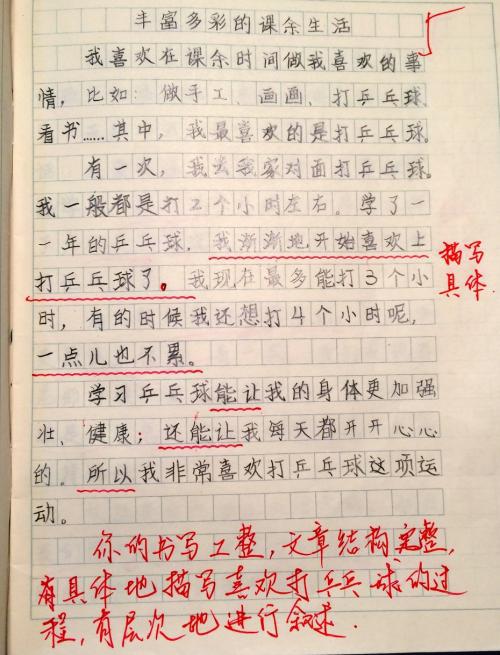 丰富多彩的课余生活
我喜欢在课余时间做我喜欢的事
情，比如：做手工、画画、打乒乓球
看书……其中，我最喜欢的是打乒乓球。
有一次，我去我家对面打乒乓球。
我一般都是打2个小时左右。学了一
一年的乒乓球，我渐渐地开始喜欢上
打乒乓球了。我现在最多能打3个小
时，有的时候我还想打4个小时呢，
一点儿也不累。
描写
具体.
学习乒乓球能让我的身体更加强
壮、健康；还能让我每天都开开心心
的。所以我非常喜欢打乒乓球这项运
动。
你的书写工整，文章结构完整，
有具体地描写喜欢打乒乓球的过
程，有层次地进行叙述.